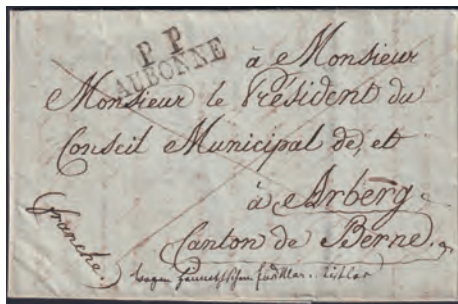 P P
AUBONNE
à Monsieur
Monsieur le Président du
Conseil Municipal de, et
à Arberg
Canton de Berne.
franche.
wegen